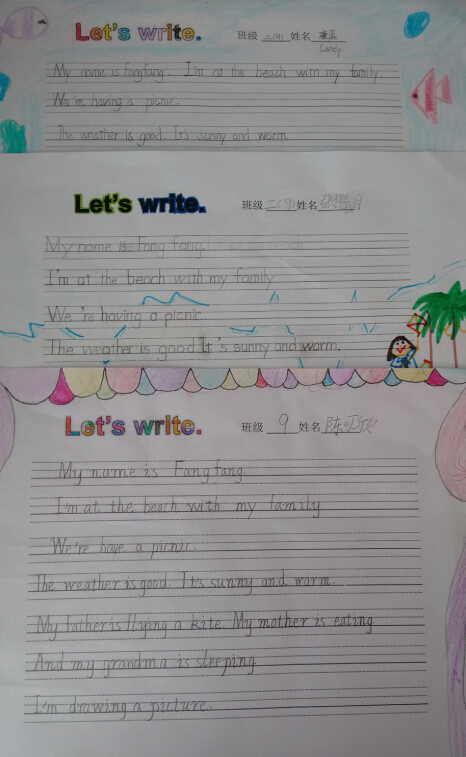 Let's write. 班级 二(9) 姓名
Candy
My name is Fangfang. I'm at the beach with my family.
We're having a picnic.
The weather is good. It's sunny and warm.
Let's write. 班级 二(9) 姓名
My name is Fang fang.
I'm at the beach with my family
We 're having a picnic.
The weather is good It 's sunny and warm.
Let's write. 班级 9 姓名 陈可欣
My name is Fangfang.
I'm at the beach with my family
We're have a picnic.
The weather is good. It's sunny and warm.
My father is flying a kite. My mother is eating.
And my grandma is sleeping.
I'm drawing a picture.